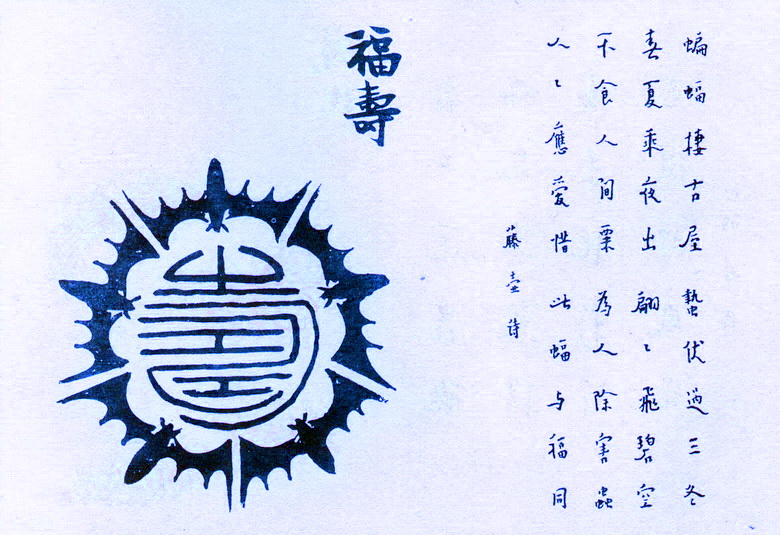 蝙蝠棲古屋蟄伏過三冬
春夏乘夜出翩〻飛碧空
不食人间粟為人除害蟲
人〻應愛惜此蝠与福同
藤壶诗
福壽
壽